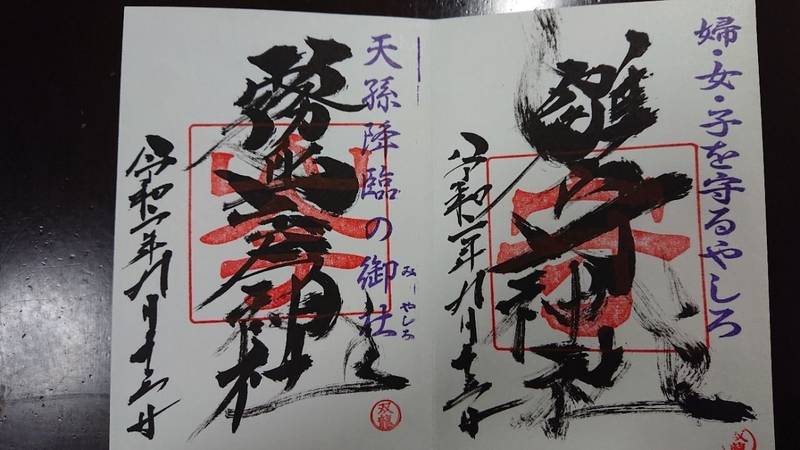 婦・女・子を守るやしろ
雛守神社
令和二年九月十六日
天孫降臨の御社
みーやしろ
霧島岑神社
令和二年九月十六日
双龍